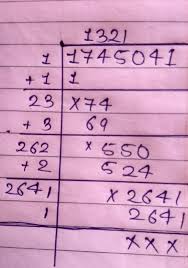 1321
1 1745041
+ 1 1
23 × 74
+ 3 69
262 × 550
+ 2 524
2641 × 2641
1 2641
× × ×